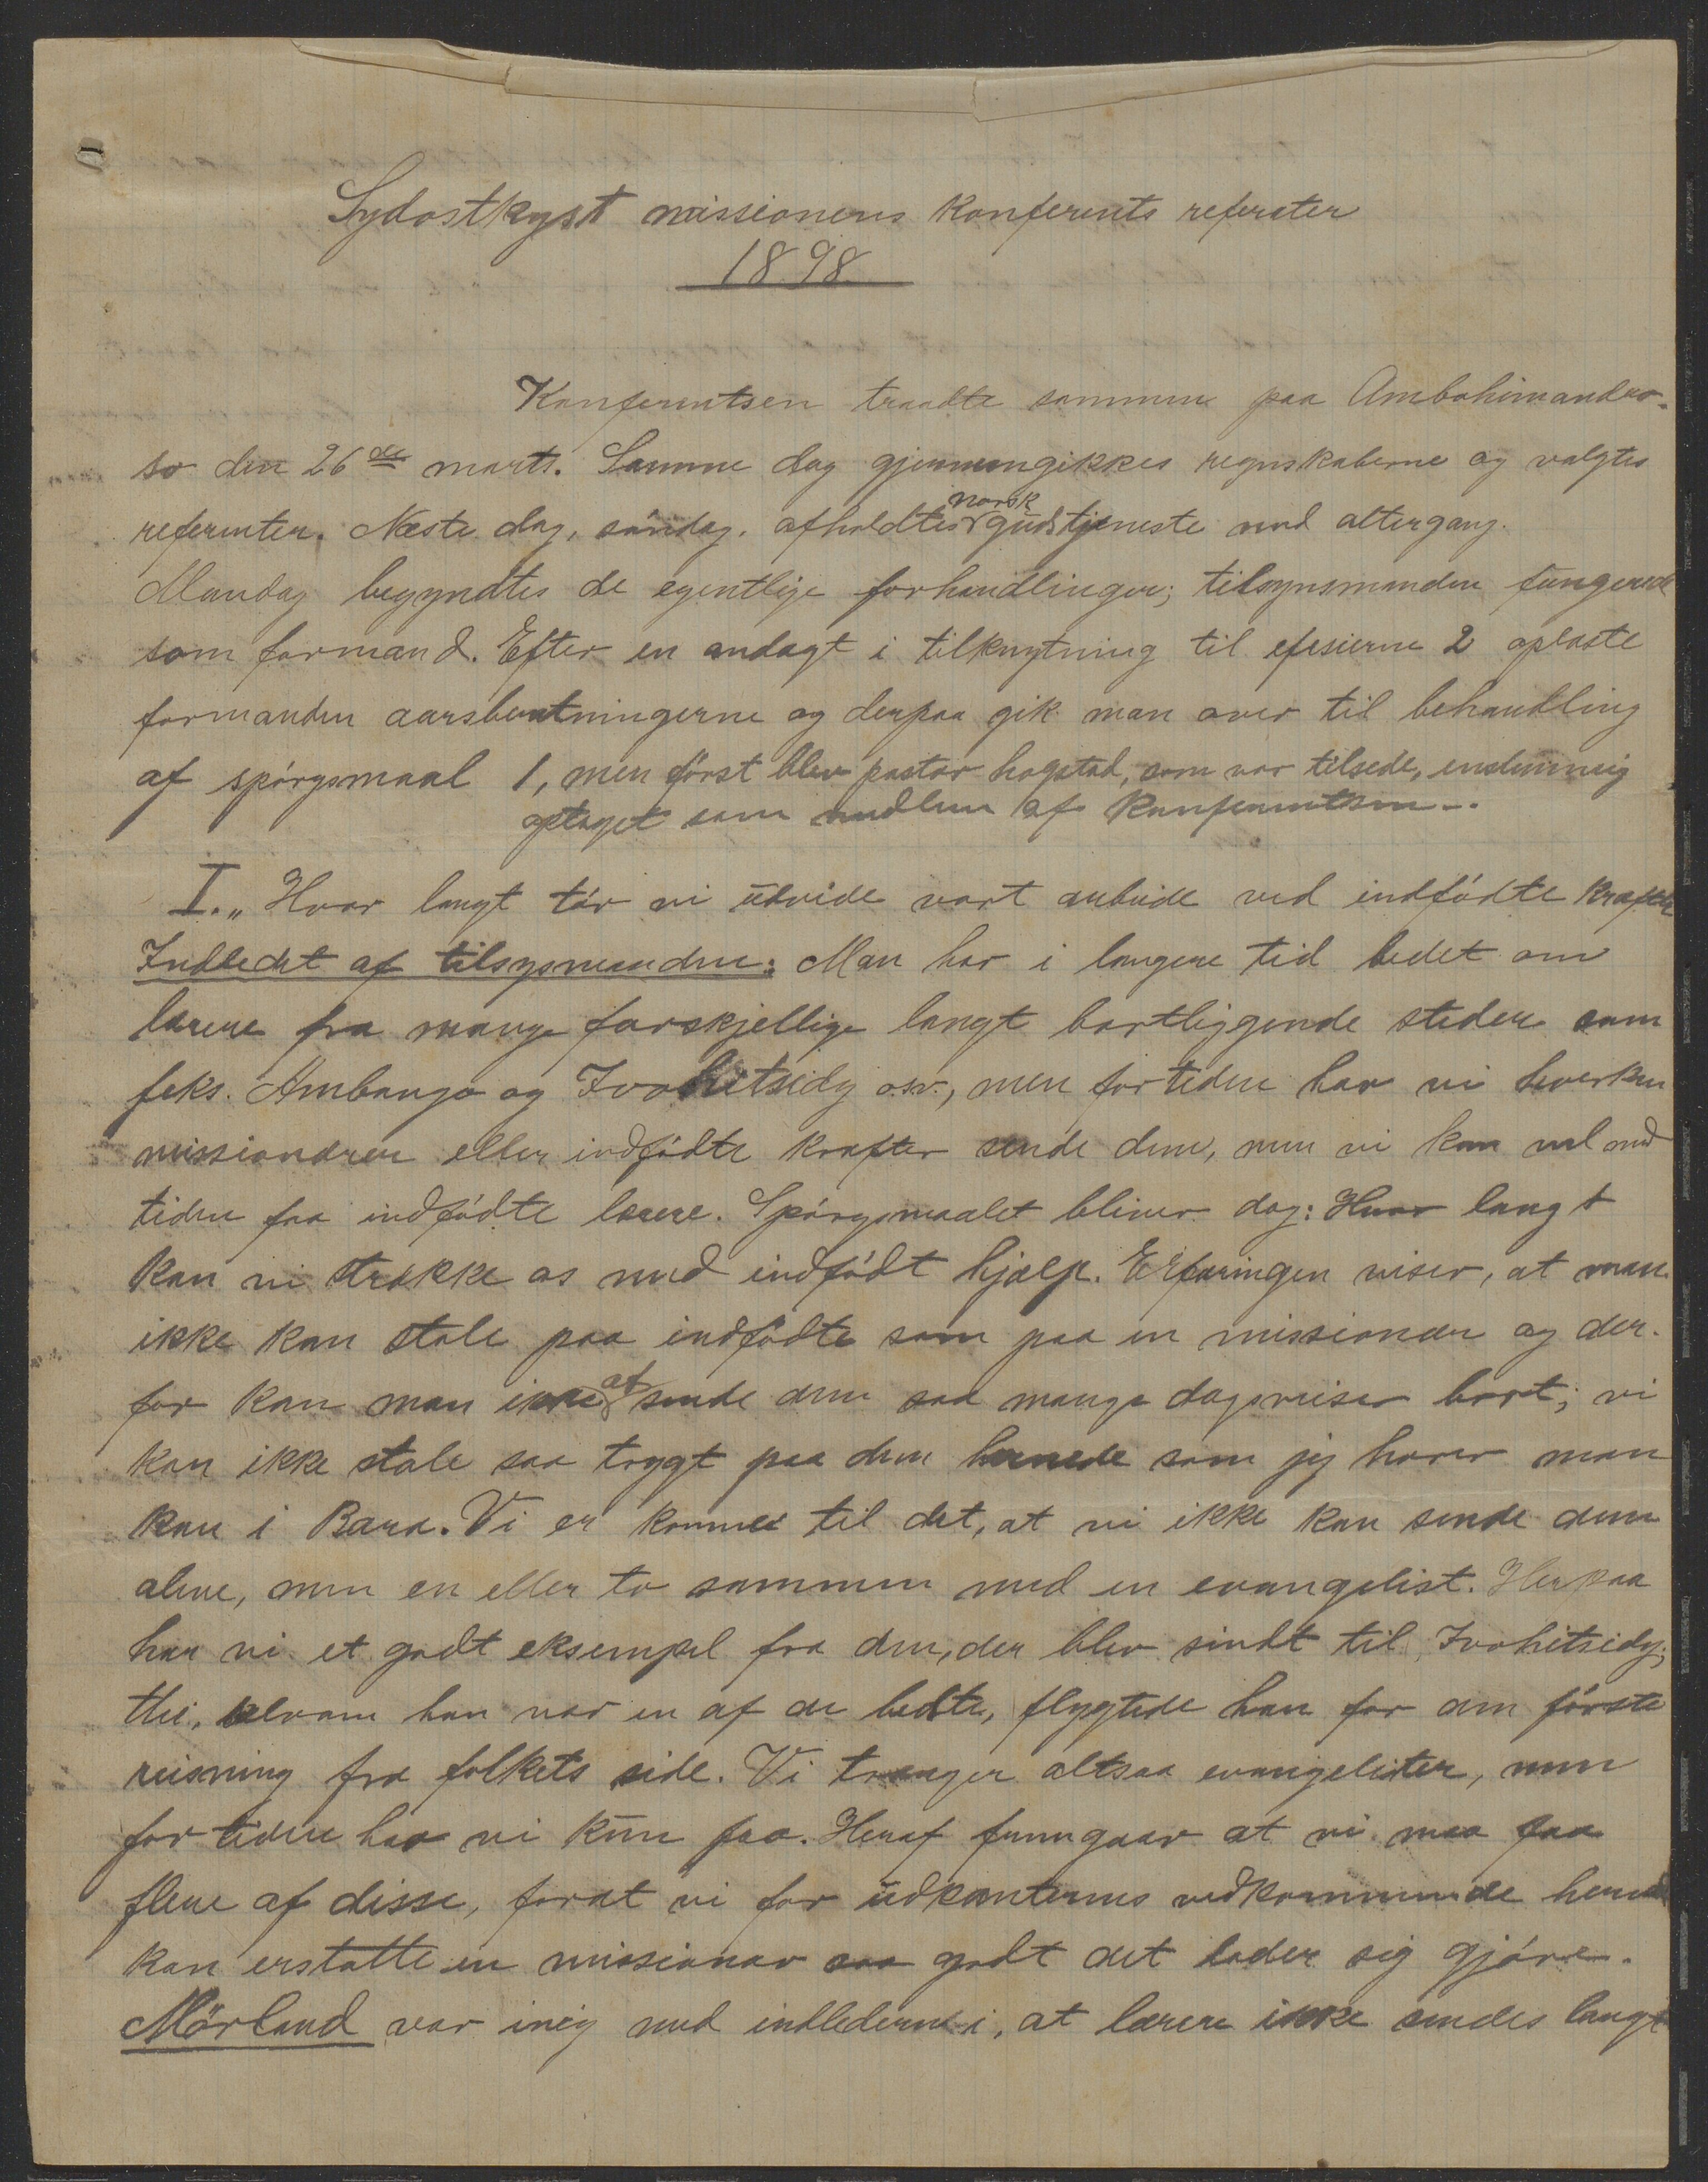 Sydostkyst missionens konferents referater
1898
Konferentsen traadte sammen paa Ambohimandro-
so den 26de marts. Samme dag gjennemgikkes regnskaberne og valgtes
referenter. Næste dag, søndag, afholdtes norsk gudstjeneste med altergang.
Mandag begyndtes de egentlige forhandlinger; tilsynsmanden fungerede
som formand. Efter en andagt i tilknytning til efesierne 2 oplæste
formanden aarsberetningerne og derpaa gik man over til behandling
af spórgsmaal 1, men fórst blev pastor hogstad, som var tilsede, enstemmig
optaget som medlem af konferentsen.
I. „Hvor langt tór vi udvide vort arbeide ved indfódte kræfter
Indledet af tilsysmanden: Man har i længere tid bedet om
lærere fra mange forskjellige langt bortliggende steder som
feks. Ambango og Ivohitsidy o.s.v., men fortiden har vi hverken
missionærer eller indfódte kræfter sende dem, men vi kan vel med
tiden faa indfódte lærere. Spórgsmaalet bliver dog: Hvor langt
kan vi strække os med indfódt hjælp. Erfaringen viser, at man
ikke kan stole paa indfódte som paa en missionær og der-
for kan man ikke afsende dem saa mange dagsreiser bort; vi
kan ikke stole saa trygt paa dem hernede som jeg hører man
kan i Bara. Vi er kommet til det, at vi ikke kan sende dem
alene, men en eller to sammen med en evangelist. Herpaa
har vi et godt eksempel fra den, der blev sendt til Ivohitsidy;
thi, selvom han var en af de bedste, flygtede han for den fórste
reisning fra folkets side. Vi trænger altsaa evangelister, men
for tiden har vi kun faa. Heraf fremgaar at vi maa faa
flere af disse, forat vi for udkanternes vedkommende
kan erstatte en missionær saa godt det lader sig gjóre.
Mórland var enig med indlederen i, at lærere ikke sendes langt